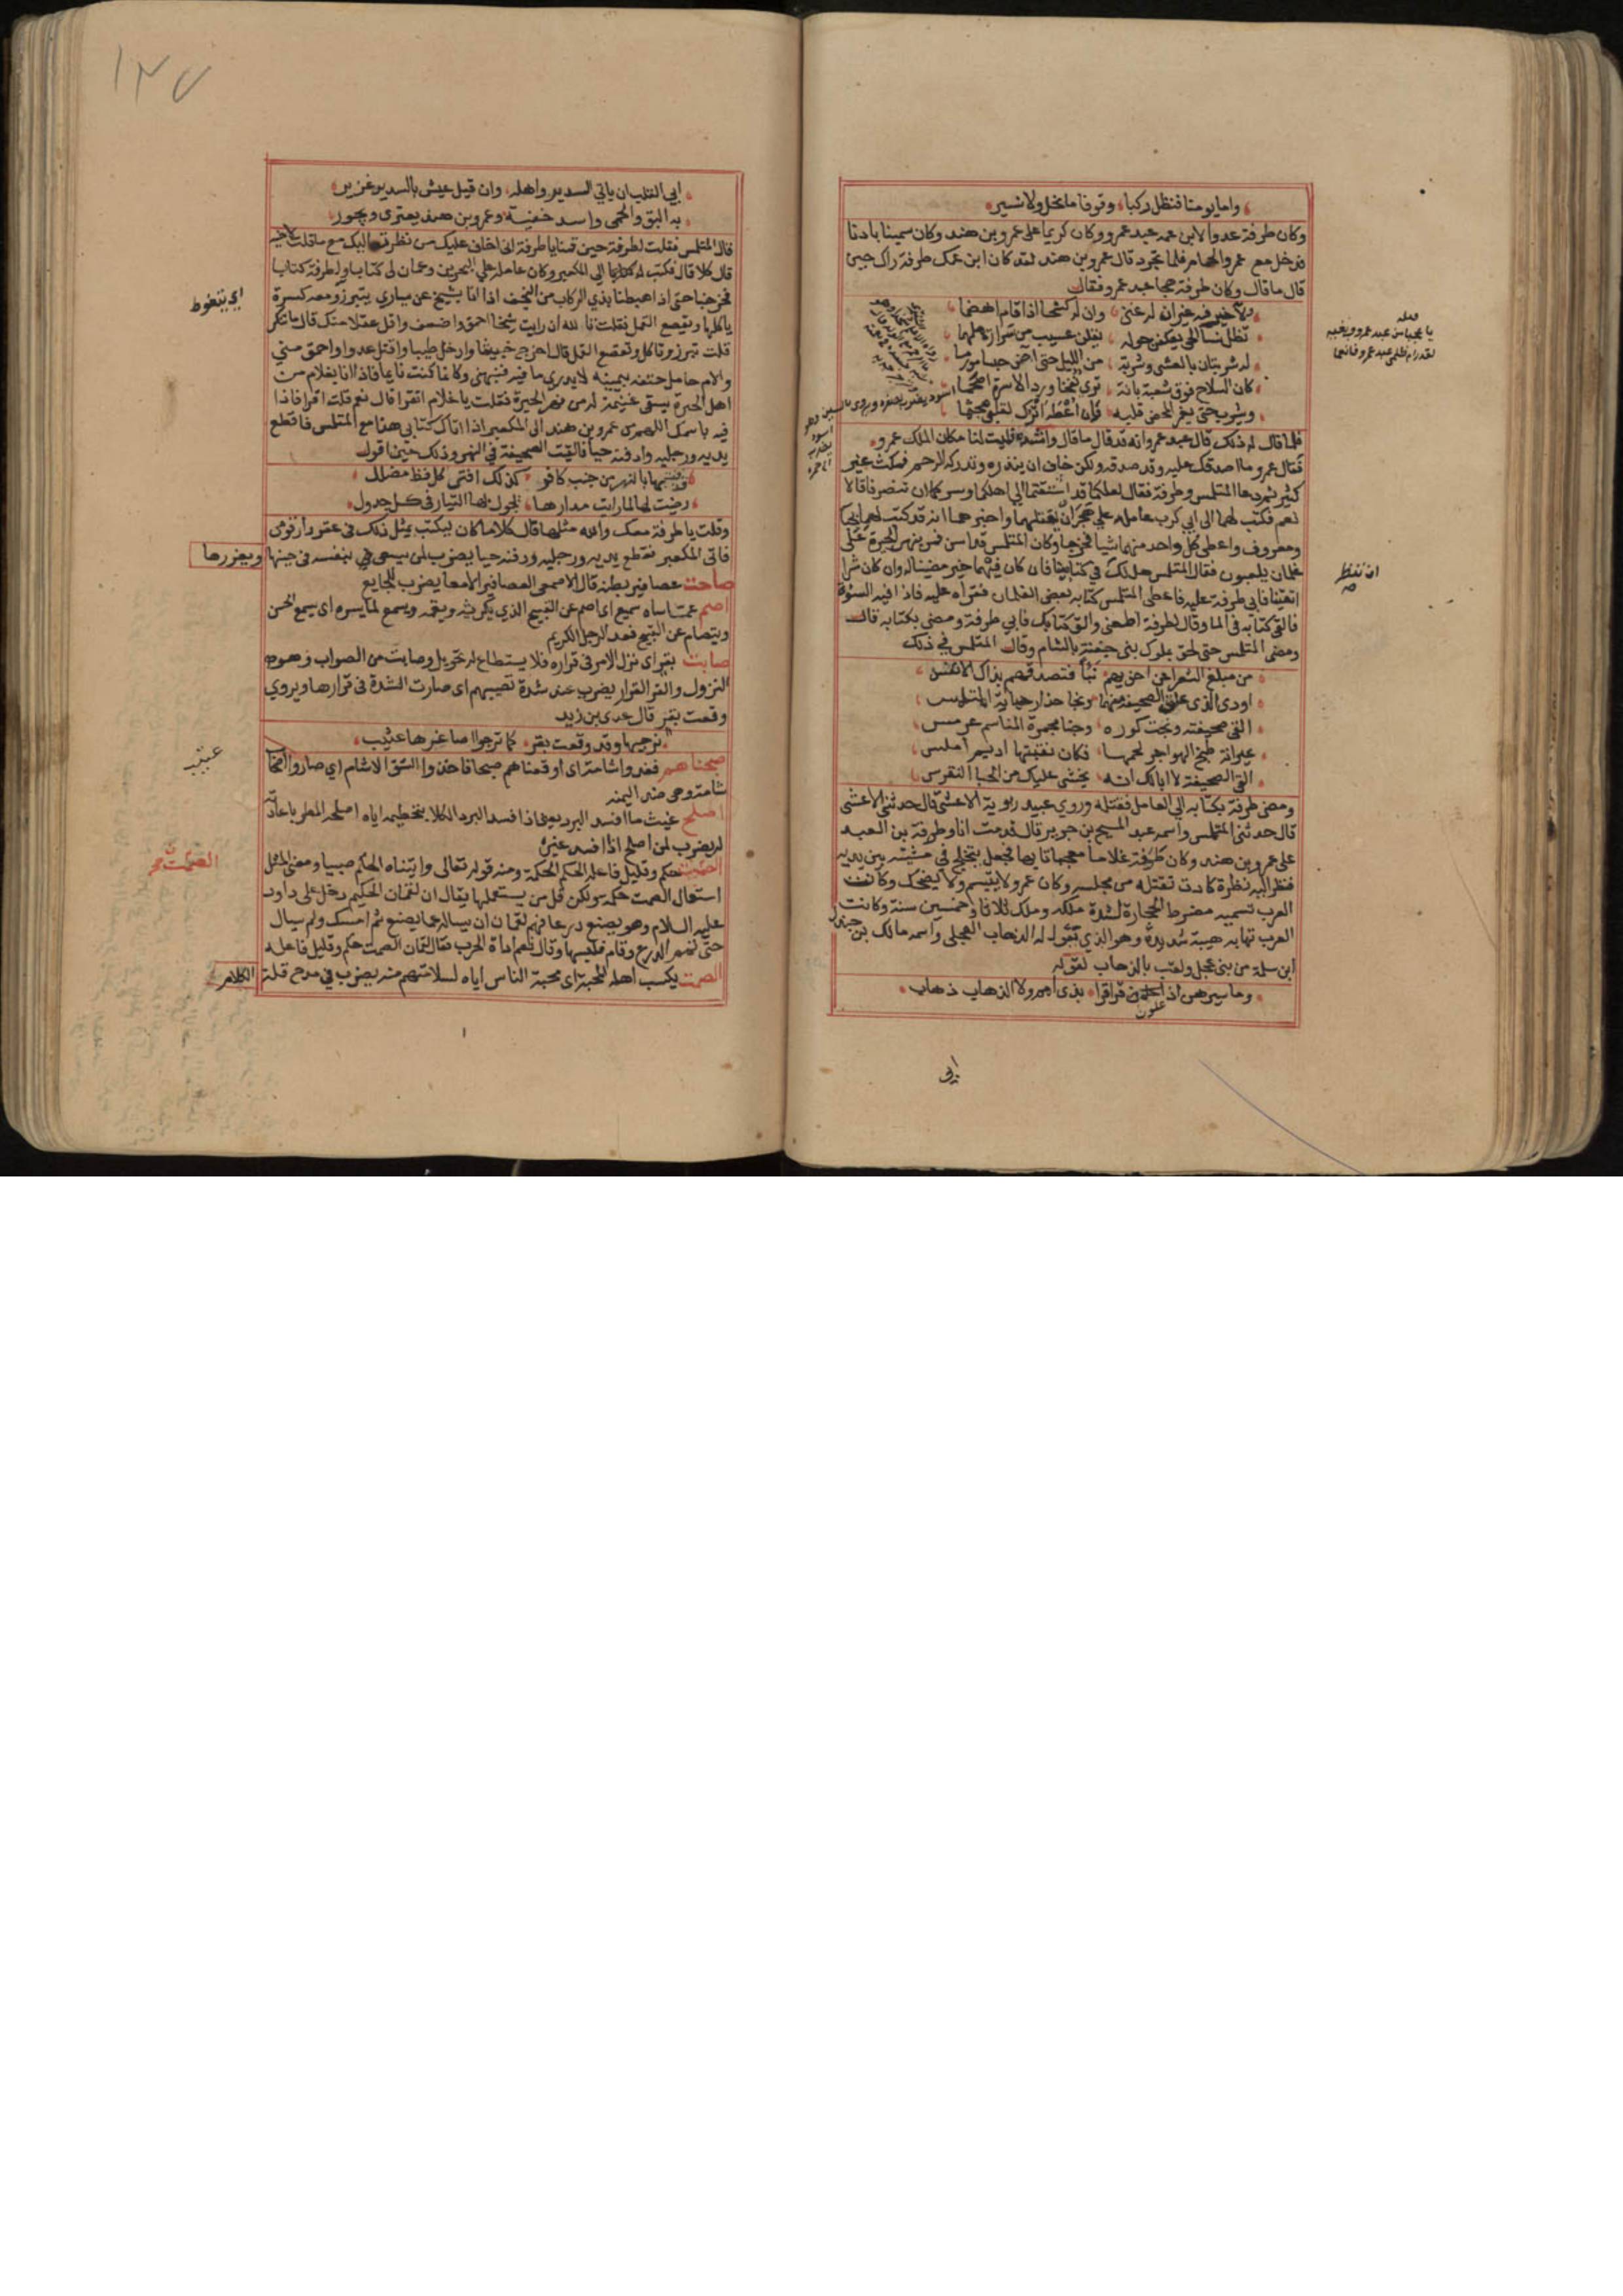 واما يومنا فنظل ركبا وقوفا ما نحل ولا نسير
وكان طرفة عدوا لابن عمه عبد عمرو وكان كريما على عمرو بن هند وكان سمينا بادنا
فدخل مع عمرو الحمام فلما تجرد قال عمرو بن هند لقد كان ابن عمك طرفة راك حين
قال ما قال وكان طرفة هجا عبد عمرو فقال
ولا خير فيه غير ان له غنى وان له كشحا اذا قام اهضما
تظل نسا الحي يعكفن حوله يقلن عسيب من سرارة ملهما
له شربتان بالعشي وشربة من الليل حتى آض جسا مورما
كان السلاح فوق شعبة بانة ترى نفخا ورد الاسرة اصحما
ويشرب حتى يغمر المحض قلبه فان اعطه اترك لقلبي مجثما
فلما قال له ذلك قال عبد عمرو انه قد قال ما قال وانشده فليت لنا مكان الملك عمرو
فقال عمرو ما اصدقك عليه وقد صدقه ولكن خاف ان ينذره وتدركه الرحم فمكث غير
كثير ثم دعا المتلمس وطرفة فقال لعلكما قد اشتقتما الى اهلكما وسركما ان تنصرفا قالا
نعم فكتب لهما الى ابي كرب عامله على هجر ان يقتلهما واخبرهما انه قد كتب لهما بحبا
ومعروف واعطى كل واحد منهما شيا فخرجا وكان المتلمس قد اسن فمر بنهر الحيرة على
غلمان يلعبون فقال المتلمس هل لك في كتابينا فان كان فيهما خير مضينا له وان كان شرا
اتقينا فابى طرفة عليه فاعطى المتلمس كتابه بعض الغلمان فقراه عليه فاذا فيه السوة
فالقى كتابه في الما وقال لطرفة اطعني والق كتابك فابى طرفة ومضى بكتابه قال
ومضى المتلمس حتى لحق بملوك بني جفنة بالشام وقال المتلمس في ذلك
من مبلغ الشعرا عن اخويهم نبأ فتصدقهم بذاك الانفس
اودى الذي علق الصحيفة منهما ونجا حذار حياته المتلمس
القى صحيفته ونجت كوره وجنا مجمرة المناسم عرمس
عيرانة طبخ الهواجر لحمها فكان نقبتها اديم املس
الق الصحيفة لا ابالك انه يخشى عليك من الحبا النقرس
ومضى طرفة بكتابه الى العامل فقتله وروى عبيد راوية الاعشى قال حدثني الاعشى
قال حدثني المتلمس واسمه عبد المسيح بن جرير قال قدمت انا وطرفة بن العبد
على عمرو بن هند وكان طرفة غلاما معجبا تايها فجعل يتخلج في مشيته بين يديه
فنظر اليه نظرة كادت تقتله من مجلسه وكان عمرو لا يتبسم ولا يضحك وكانت
العرب تسميه مضرط الحجارة لشدة ملكه وملك ثلاثا وخمسين سنة وكانت
العرب تهابه هيبة شديدة وهو الذي يقول له الذهاب العجلي واسمه مالك بن جندل
ابن سلمة من بني عجل ولقب بالذهاب لقوله
وما سيرهن اذ علون قراقرا بذي امم ولا الذهاب ذهاب
ابى
يا عجبا من عبد عمرو وبغيه
لقد رام ظلمي عبد عمرو فانعما
١٢٧
ابى القلب ان ياتي السدير واهله وان قيل عيش بالسدير غزير
به البق والحمى واسد خفية وعمرو بن هند يعتدي ويجور
قال المتلمس فقلت لطرفة حين قمنا يا طرفة اني اخاف عليك من نظرته اليك مع ما قلت لاخيه
قال كلا قال فكتب له كتابا الى المكعبر وكان عامله على البحرين وعمان لي كتابا ولطرفة كتابا
فخرجنا حتى اذا هبطنا بذي الركاب من النجف اذا انا بشيخ عن يساري يتبرز ومعه كسرة
ياكلها ويقصع القمل فقلت تالله ان رايت شيخا احمق واضعف واقل عقلا منك قال ما تنكر
قلت تبرز وتاكل وتقصع القمل قال اخرج خبيثا وادخل طيبا واقتل عدوا واحمق مني
والام حامل حتفه بيمينه لا يدري ما فيه فنبهني وكانما كنت نايما فاذا انا بغلام من
اهل الحيرة يسقي غنيمة له من نهر الحيرة فقلت يا غلام اتقرا قال نعم قلت اقرا فاذا
فيه باسمك اللهم من عمرو بن هند الى المكعبر اذا اتاك كتابي هذا مع المتلمس فاقطع
يديه ورجليه وادفنه حيا فالقيت الصحيفة في النهر وذلك حين اقول
قذفت بها بالنهر من جنب كافر كذلك اقنى كل قط مضلل
رضيت لها لما رايت مدارها يجول بها التيار في كل جدول
وقلت يا طرفة معك والله مثلها قال كلا ما كان ليكتب بمثل ذلك في عقر دار قومي
فاتى المكعبر فقطع يديه ورجليه ودفنه حيا يضرب لمن يسعى في بنفسه في حينها ويغررها
صاحت عصافير بطنه قال الاصمعي العصافير الامعا يضرب للجايع
اصم عما ساه سميع اي اصم عن القبيح الذي يكرثه ويغمه ويسمع لما يسره اي يسمع الحسن
ويتصام عن القبيح فعل الرجل الكريم
صابت بقر اي نزل الامر في قراره فلا يستطاع له تحويل وصابت من الصواب وهو
النزول والقر القرار يضرب عند شدة تصيبهم اي صارت الشدة في قرارها ويروى
وقعت بقر قال عدي بن زيد
ترجيها وقد وقعت بقر كما ترجو اصاغرها عتيب
صبحناهم فغدوا شامة اي اوقعنا بهم صبحا فاخذوا الشق الاشام اي صاروا اصحاب
شامة وهي ضد اليمنه
اصلح غيث ما افسد البرد يعني اذا افسد البرد الكلا بتحطيمه اياه اصلحه المطر باعادته
له يضرب لمن اصلح ما افسد غيره
الصمت حكم وقليل فاعله الحكم الحكمة ومنه قوله تعالى واتيناه الحكم صبيا ومعنى المثل
استعمال الصمت حكمة ولكن قل من يستعملها يقال ان لقمان الحكيم دخل على داود
عليه السلام وهو يصنع درعا فهم لقمان ان يساله عما يصنع ثم امسك ولم يسال
حتى تم الدرع وقام فلبسها وقال نعم اداة الحرب فقال لقمان الصمت حكم وقليل فاعله
الصمت يكسب اهله المحبة اي محبة الناس اياه لسلامتهم منه يضرب في مدح قلة الكلام
اي يتغوط
عتيب
الصمت